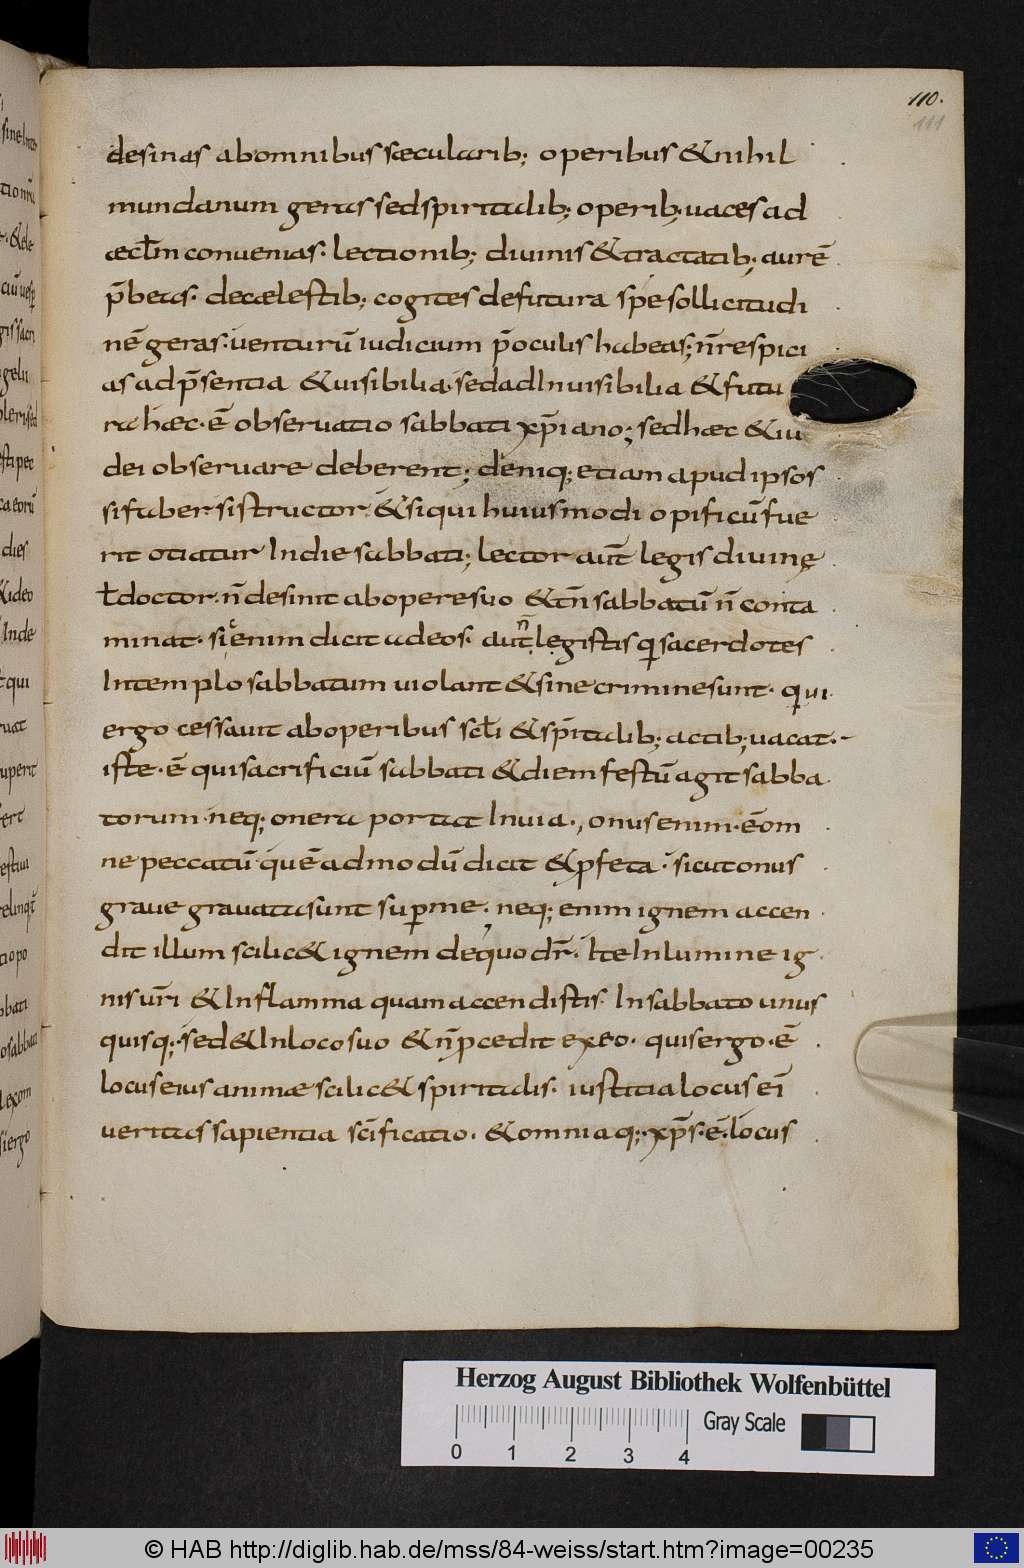 110.
111
desinas abomnibus sæcularib; operibus & nihil
mundanum geras sed spiritalib; operib; uaces ad
æcl̅m conuenias· lectionib; diuinis & tractatib; aurē
p̄beas· decælestib; cogites defutura spe sollicitudi
nē geras· uenturū iudicium p̄oculis habeas; n̄ respici
as ad p̄sentia & uisibilia· sed ad Inuisibilia & futu
ra hæc· ē obseruatio sabbati xp̄iano; sed hæc & iu
dei obseruare deberent; deniq; etiam apud ipsos
si faber si structor· & siqui huiusmodi opificū fue
rit otiatur In die sabbati; lector aut̄ legis diuinę
ł doctor· n̄ desinit ab opere suo & tn̄ sabbatū n̄ conta
minat· sic enim dicit ad eos· aut̄ n̄ legistis qi sacerdotes
In templo sabbatum uiolant & sine crimine sunt· qui
ergo cessauit ab operibus sc̄li & sp̄italib; actib; uacat·
iste· ē qui sacrificiū sabbati & diem festū agit sabba
torum· neq; onera portat In uia·, onus enim· ē om
ne peccatū quēadmodū dicit & ꝓfeta· sicut onus
graue grauata sunt sup me· neq; enim ignem accen
dit illum scilic& ignem de quo dr̄· Ite In lumine ig
nis ur̄i & In flamma quam accendistis· In sabbato unus
quisq; sed& In loco suo & n̄ ꝓcedit ex eo· quis ergo· ē
locus eius animæ scilic& spiritalis· iustitia locus ei̅
ueritas sapientia sc̄ificatio· & omnia q; xp̄s· ē· locus
Herzog August Bibliothek Wolfenbüttel
Gray Scale
0 1 2 3 4
© HAB http://diglib.hab.de/mss/84-weiss/start.htm?image=00235